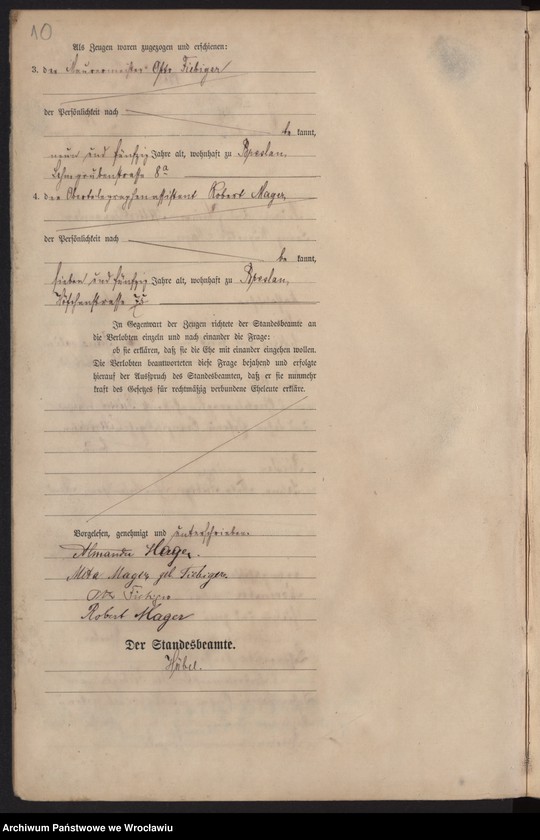 10
Als Zeugen waren zugezogen und erschienen:
3. der Maurermeister Otto Fiebiger
der Persönlichkeit nach
be kannt,
neun und fünfzig Jahre alt, wohnhaft zu Breslau,
Lehmgrubenstraße 8a
4. der Obertelegraphenassistent Robert Mager,
der Persönlichkeit nach
be kannt,
sieben und fünfzig Jahre alt, wohnhaft zu Breslau,
Höfchenstraße
In Gegenwart der Zeugen richtete der Standesbeamte an
die Verlobten einzeln und nach einander die Frage:
ob sie erklären, daß sie die Ehe mit einander eingehen wollen.
Die Verlobten beantworteten diese Frage bejahend und erfolgte
hierauf der Ausspruch des Standesbeamten, daß er sie nunmehr
kraft des Gesetzes für rechtmäßig verbundene Eheleute erkläre.
Vorgelesen, genehmigt und unterschrieben
Mager.
Meta Mager geb. Fiebiger.
Otto Fiebiger
Robert Mager
Der Standesbeamte.
Hübel.
Archiwum Państwowe we Wrocławiu